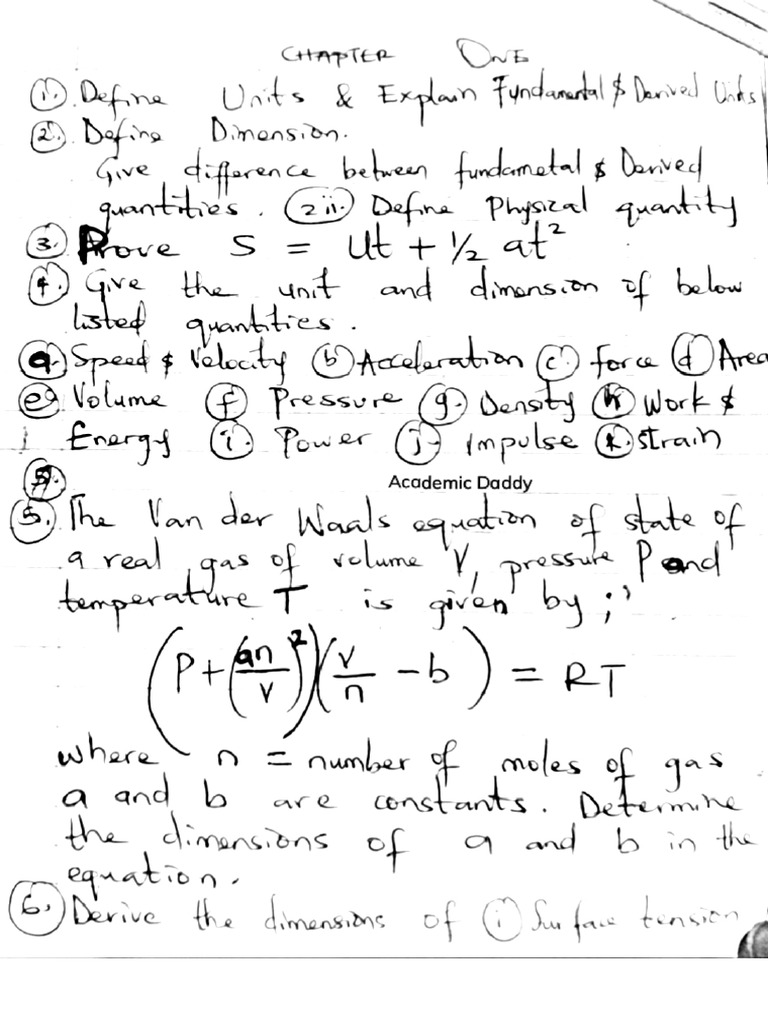 CHAPTER ONE
1. Define Units & Explain Fundamental & Derived Units
2. Define Dimension.
Give difference between fundametal & Derived
quantities. 2ii. Define Physical quantity
3. Prove S = Ut + 1/2 at²
4. Give the unit and dimension of below
listed quantities.
a. Speed & Velocity b Acceleration c. force d Area
e. Volume f. Pressure g. Density h Work &
Energy i. Power j. impulse k. strain
5.
Academic Daddy
5. The Van der Waals equation of state of
a real gas of volume V, pressure P and
temperature T is given by ;'
(P + (an/V)²)(V/n - b) = RT
where n = number of moles of gas
a and b are constants. Determine
the dimensions of a and b in the
equation.
6. Derive the dimensions of i Surface tension